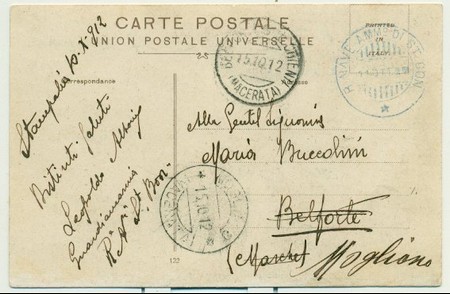 CARTE POSTALE
UNION POSTALE UNIVERSELLE
PRINTED
IN
Correspondance
15.10.12
(MACERATA)
R. NAVE AMM. DI ST. BON
Stampalia 10-X-912
Distinti Saluti
Leopoldo
Guardiamarina
R. N. St. Bon
Alla Gentil Signorina
Maria Buccolini
Belforte
(Marche)
Mogliano
15.10.12
(MACERATA)
132